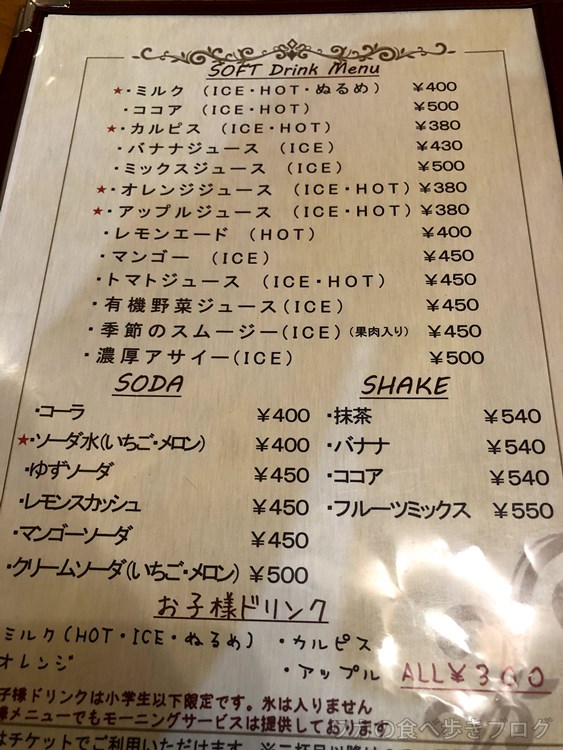 SOFT Drink Menu
★・ミルク (ICE・HOT・ぬるめ) ¥400
・ココア (ICE・HOT) ¥500
★・カルピス (ICE・HOT) ¥380
・バナナジュース (ICE) ¥430
・ミックスジュース (ICE) ¥500
★・オレンジジュース (ICE・HOT) ¥380
★・アップルジュース (ICE・HOT) ¥380
・レモンエード (HOT) ¥400
・マンゴー (ICE) ¥450
・トマトジュース (ICE・HOT) ¥450
・有機野菜ジュース(ICE) ¥450
・季節のスムージー(ICE)(果肉入り) ¥450
・濃厚アサイー(ICE) ¥500
SODA
・コーラ ¥400
★・ソーダ水(いちご・メロン) ¥400
・ゆずソーダ ¥450
・レモンスカッシュ ¥450
・マンゴーソーダ ¥450
・クリームソーダ(いちご・メロン) ¥500
SHAKE
・抹茶 ¥540
・バナナ ¥540
・ココア ¥540
・フルーツミックス ¥550
お子様ドリンク
ミルク(HOT・ICE・ぬるめ) ・カルピス
オレンジ ・アップル ALL¥300
子様ドリンクは小学生以下限定です。氷は入りません
様メニューでもモーニングサービスは提供しております
はチケットでご利用いただけます。
の食べ歩きブログ